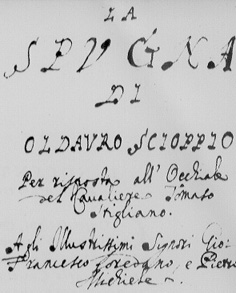 LA
SPVGNA
DI
OLDAVRO SCIOPPIO
Per risposta all' Occhiale
del Cavaliere Tomaso
Stigliano.
Agli Illustrissimi Signori Gio:
Francesco Loredano, e Pietro
Michiele.